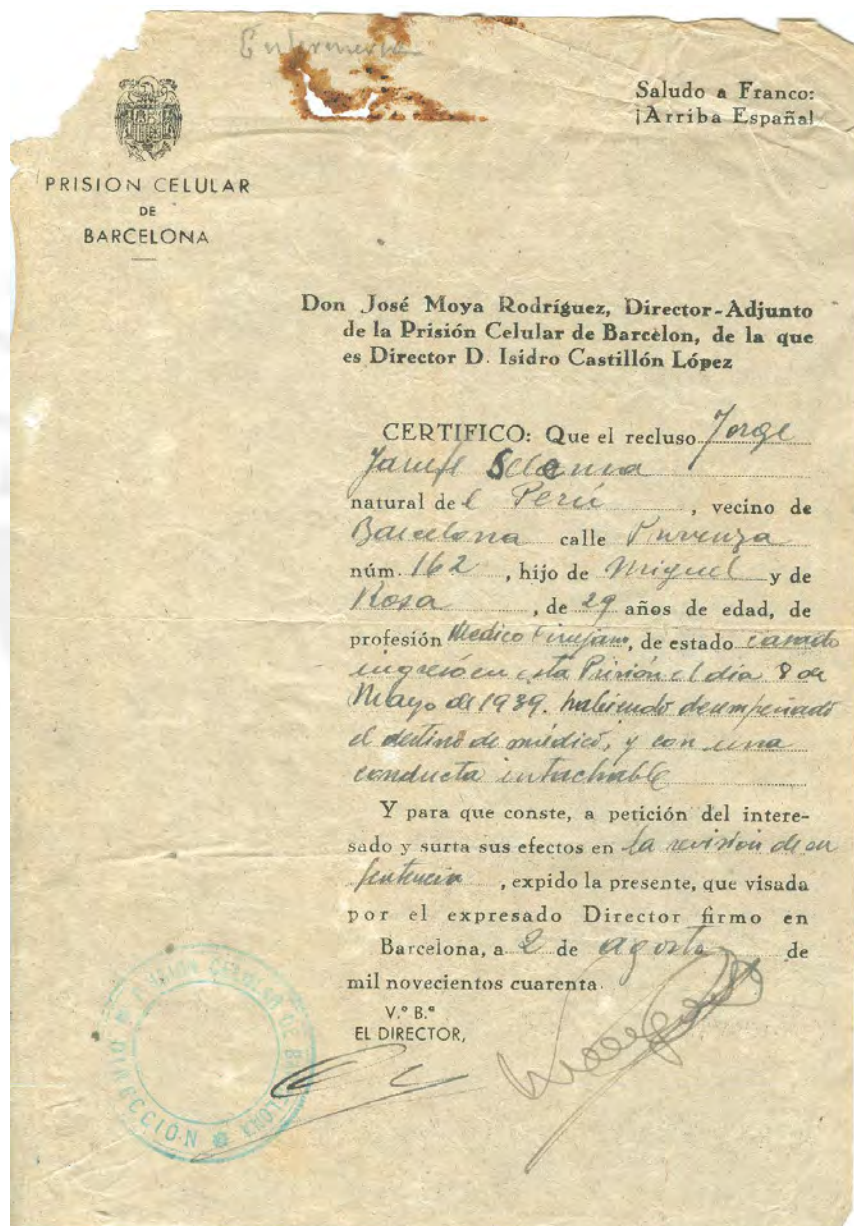 Enfermeria
Saludo a Franco:
¡Arriba España!
PRISION CELULAR
DE
BARCELONA
Don José Moya Rodríguez, Director-Adjunto
de la Prisión Celular de Barcelon, de la que
es Director D. Isidro Castillón López
CERTIFICO: Que el recluso Jorge
natural del Perú, vecino de
Barcelona calle
núm. 162, hijo de Miguel y de
Rosa, de 29 años de edad, de
profesión Medico Cirujano, de estado casado
ingresó en esta Prisión el día 8 de
Mayo de 1939. habiendo desempeñado
el destino de médico, y con una
conducta intachable
Y para que conste, a petición del intere-
sado y surta sus efectos en la revisión de su
sentencia, expido la presente, que visada
por el expresado Director firmo en
Barcelona, a 2 de agosto de
mil novecientos cuarenta.
V.º B.º
EL DIRECTOR,
PRISION CELULAR DE BARCELONA
DIRECCIÓN